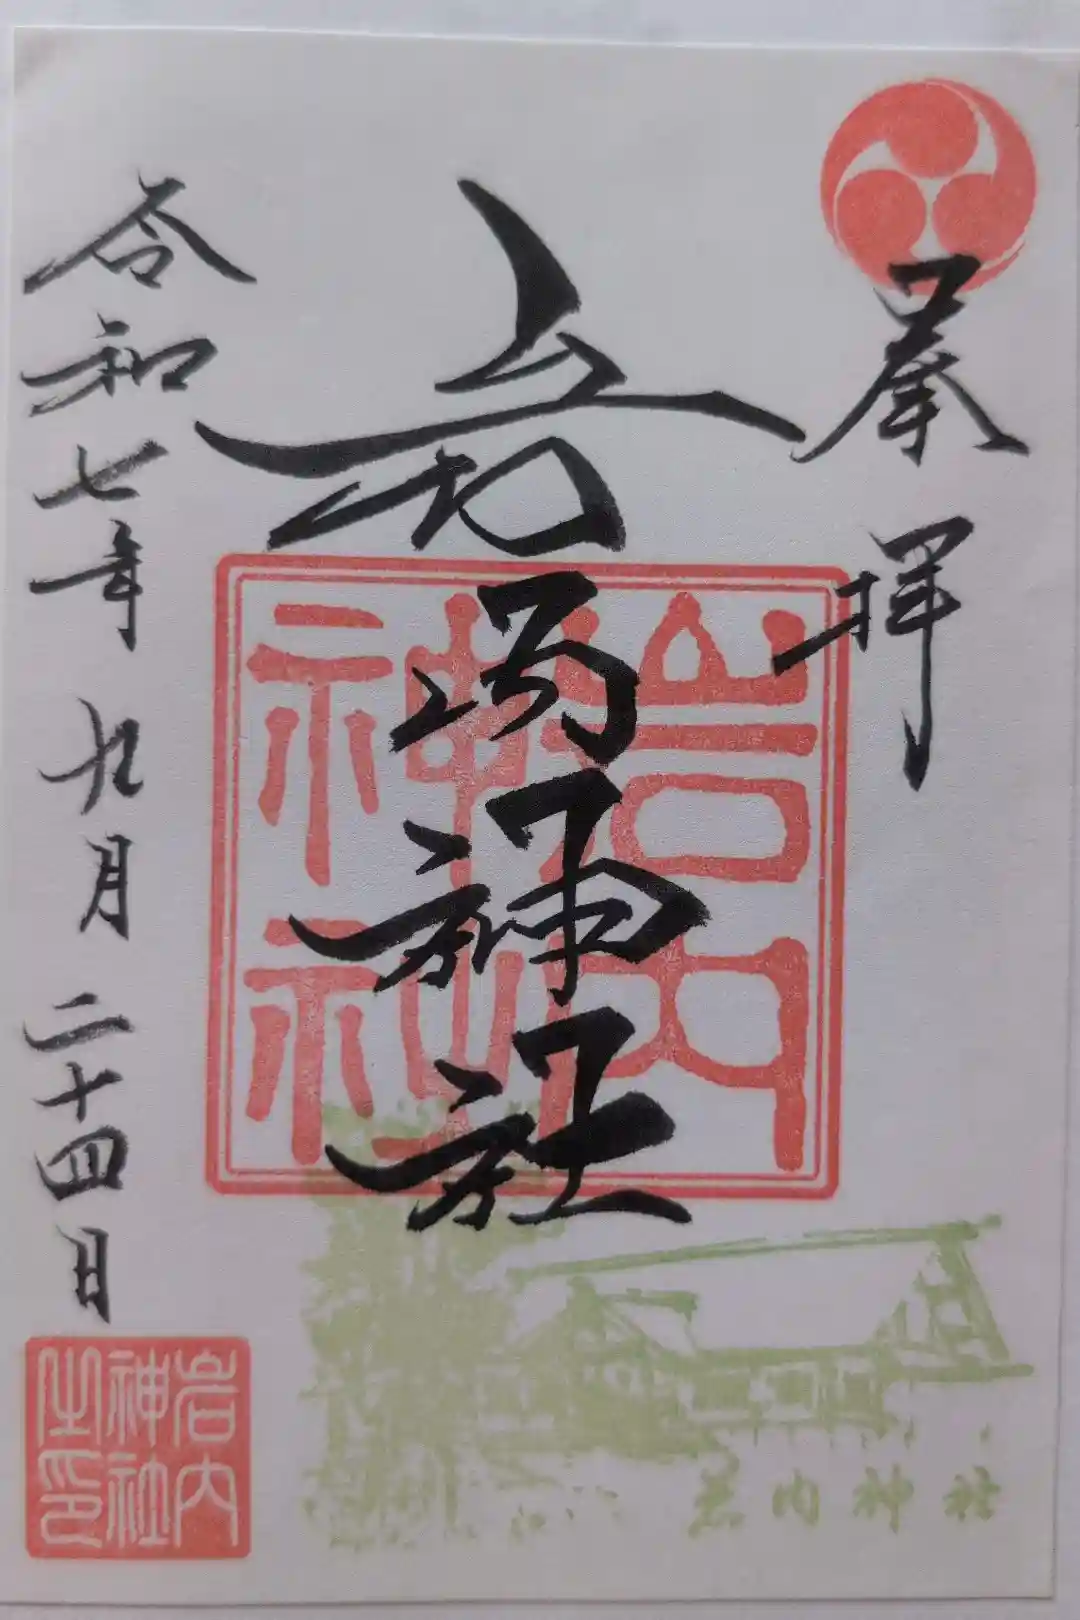 奉拝
岩内神社
令和七年 九月 二十四日
岩内
神社
岩内
神社
之印
岩内神社